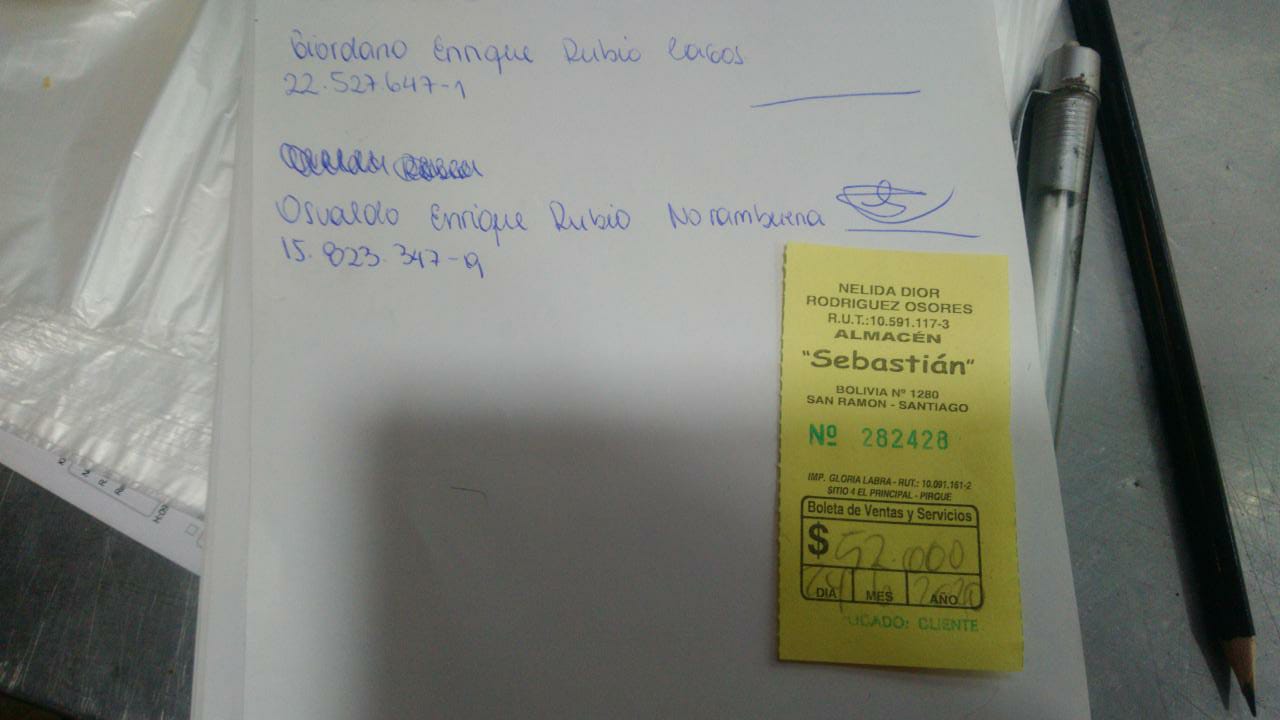 Giordano Enrique Rubio Lagos
22.527.647-1
Osvaldo Enrique Rubio Norambuena
15.823.347-9
NELIDA DIOR
RODRIGUEZ OSORES
R.U.T.:10.591.117-3
ALMACÉN
"Sebastián"
BOLIVIA Nº 1280
SAN RAMON - SANTIAGO
Nº 282428
IMP. GLORIA LABRA - RUT.: 10.091.161-2
SITIO 4 EL PRINCIPAL - PIRQUE
Boleta de Ventas y Servicios
$ 52.000
DIA MES AÑO
CLIENTE